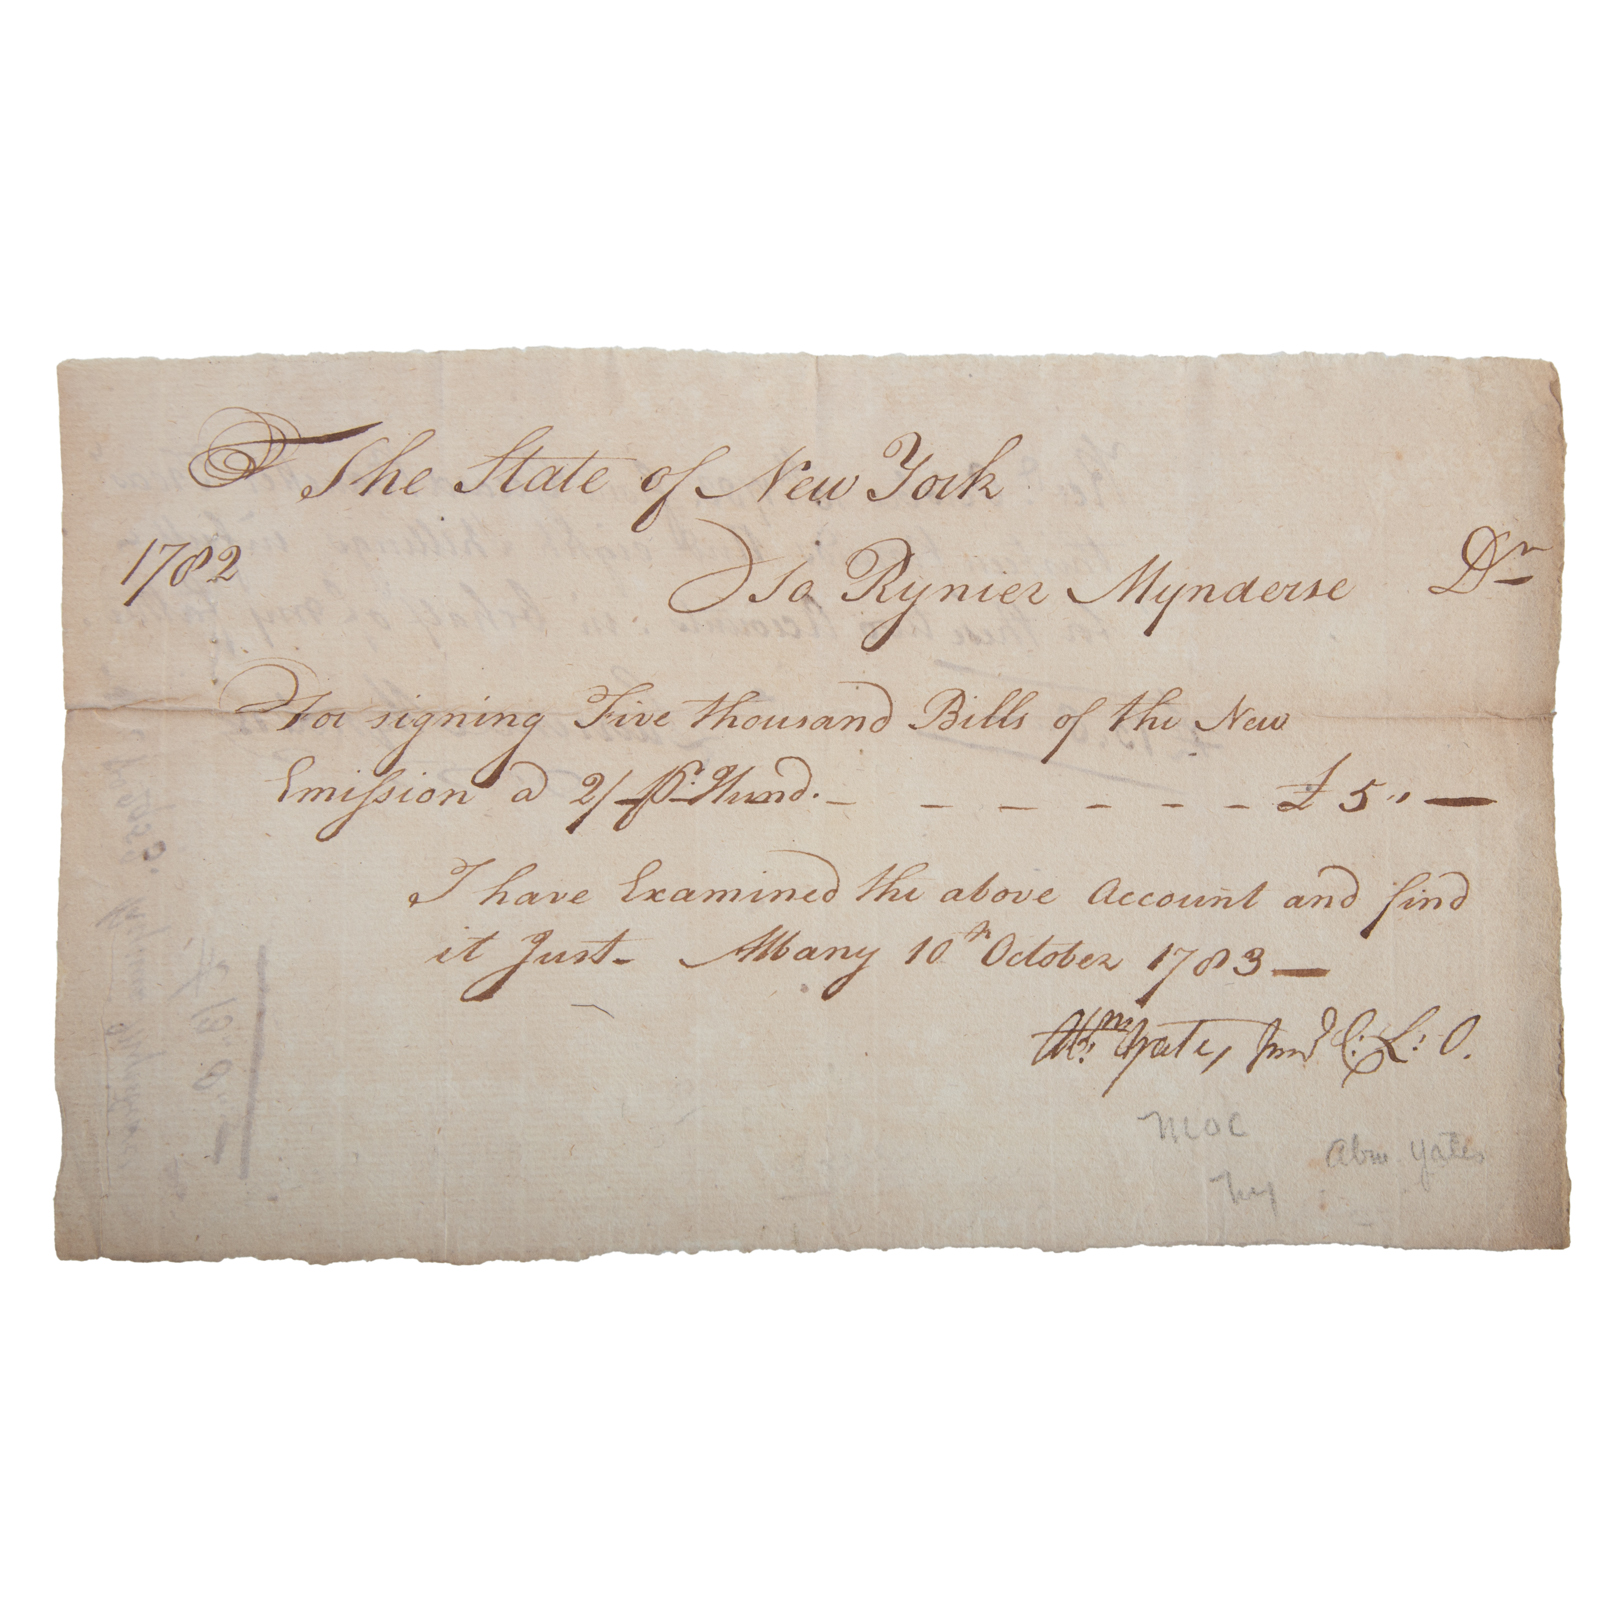 The State of New York
1782 To Rynier Mynderse Dr
For signing Five thousand Bills of the New
Emission a 2/ pr. Hund. - - - - - - - £ 5 " —
I have Examined the above Account and find
it Just - Albany 10th October 1783 —
Abm: Yates, Junr C: L: O.
MOC
Abm. Yates
NY